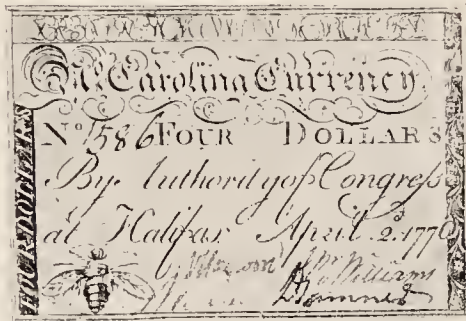 N. Carolina Currency
No 1586 FOUR DOLLARS
By Authority of Congress
at Halifax April 2d. 1776
Wm Williams
FOUR DOLLARS